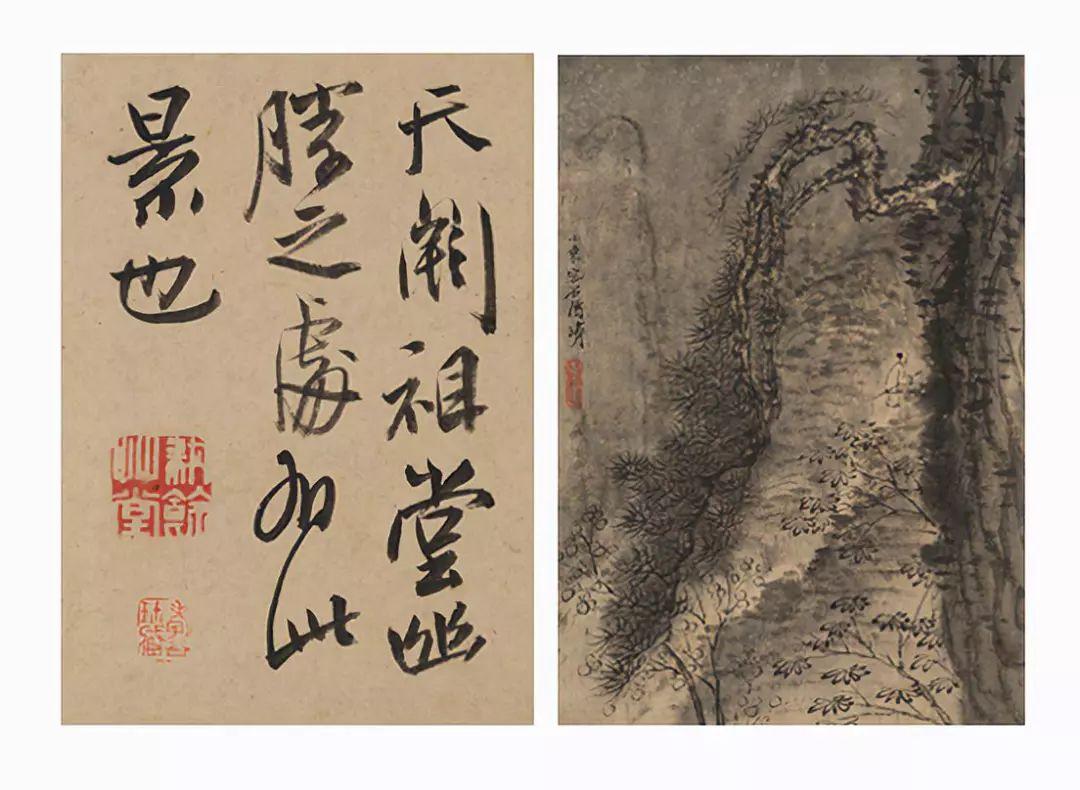 天闕祖堂幽
勝之處有此
景也
小乘客石濤濟